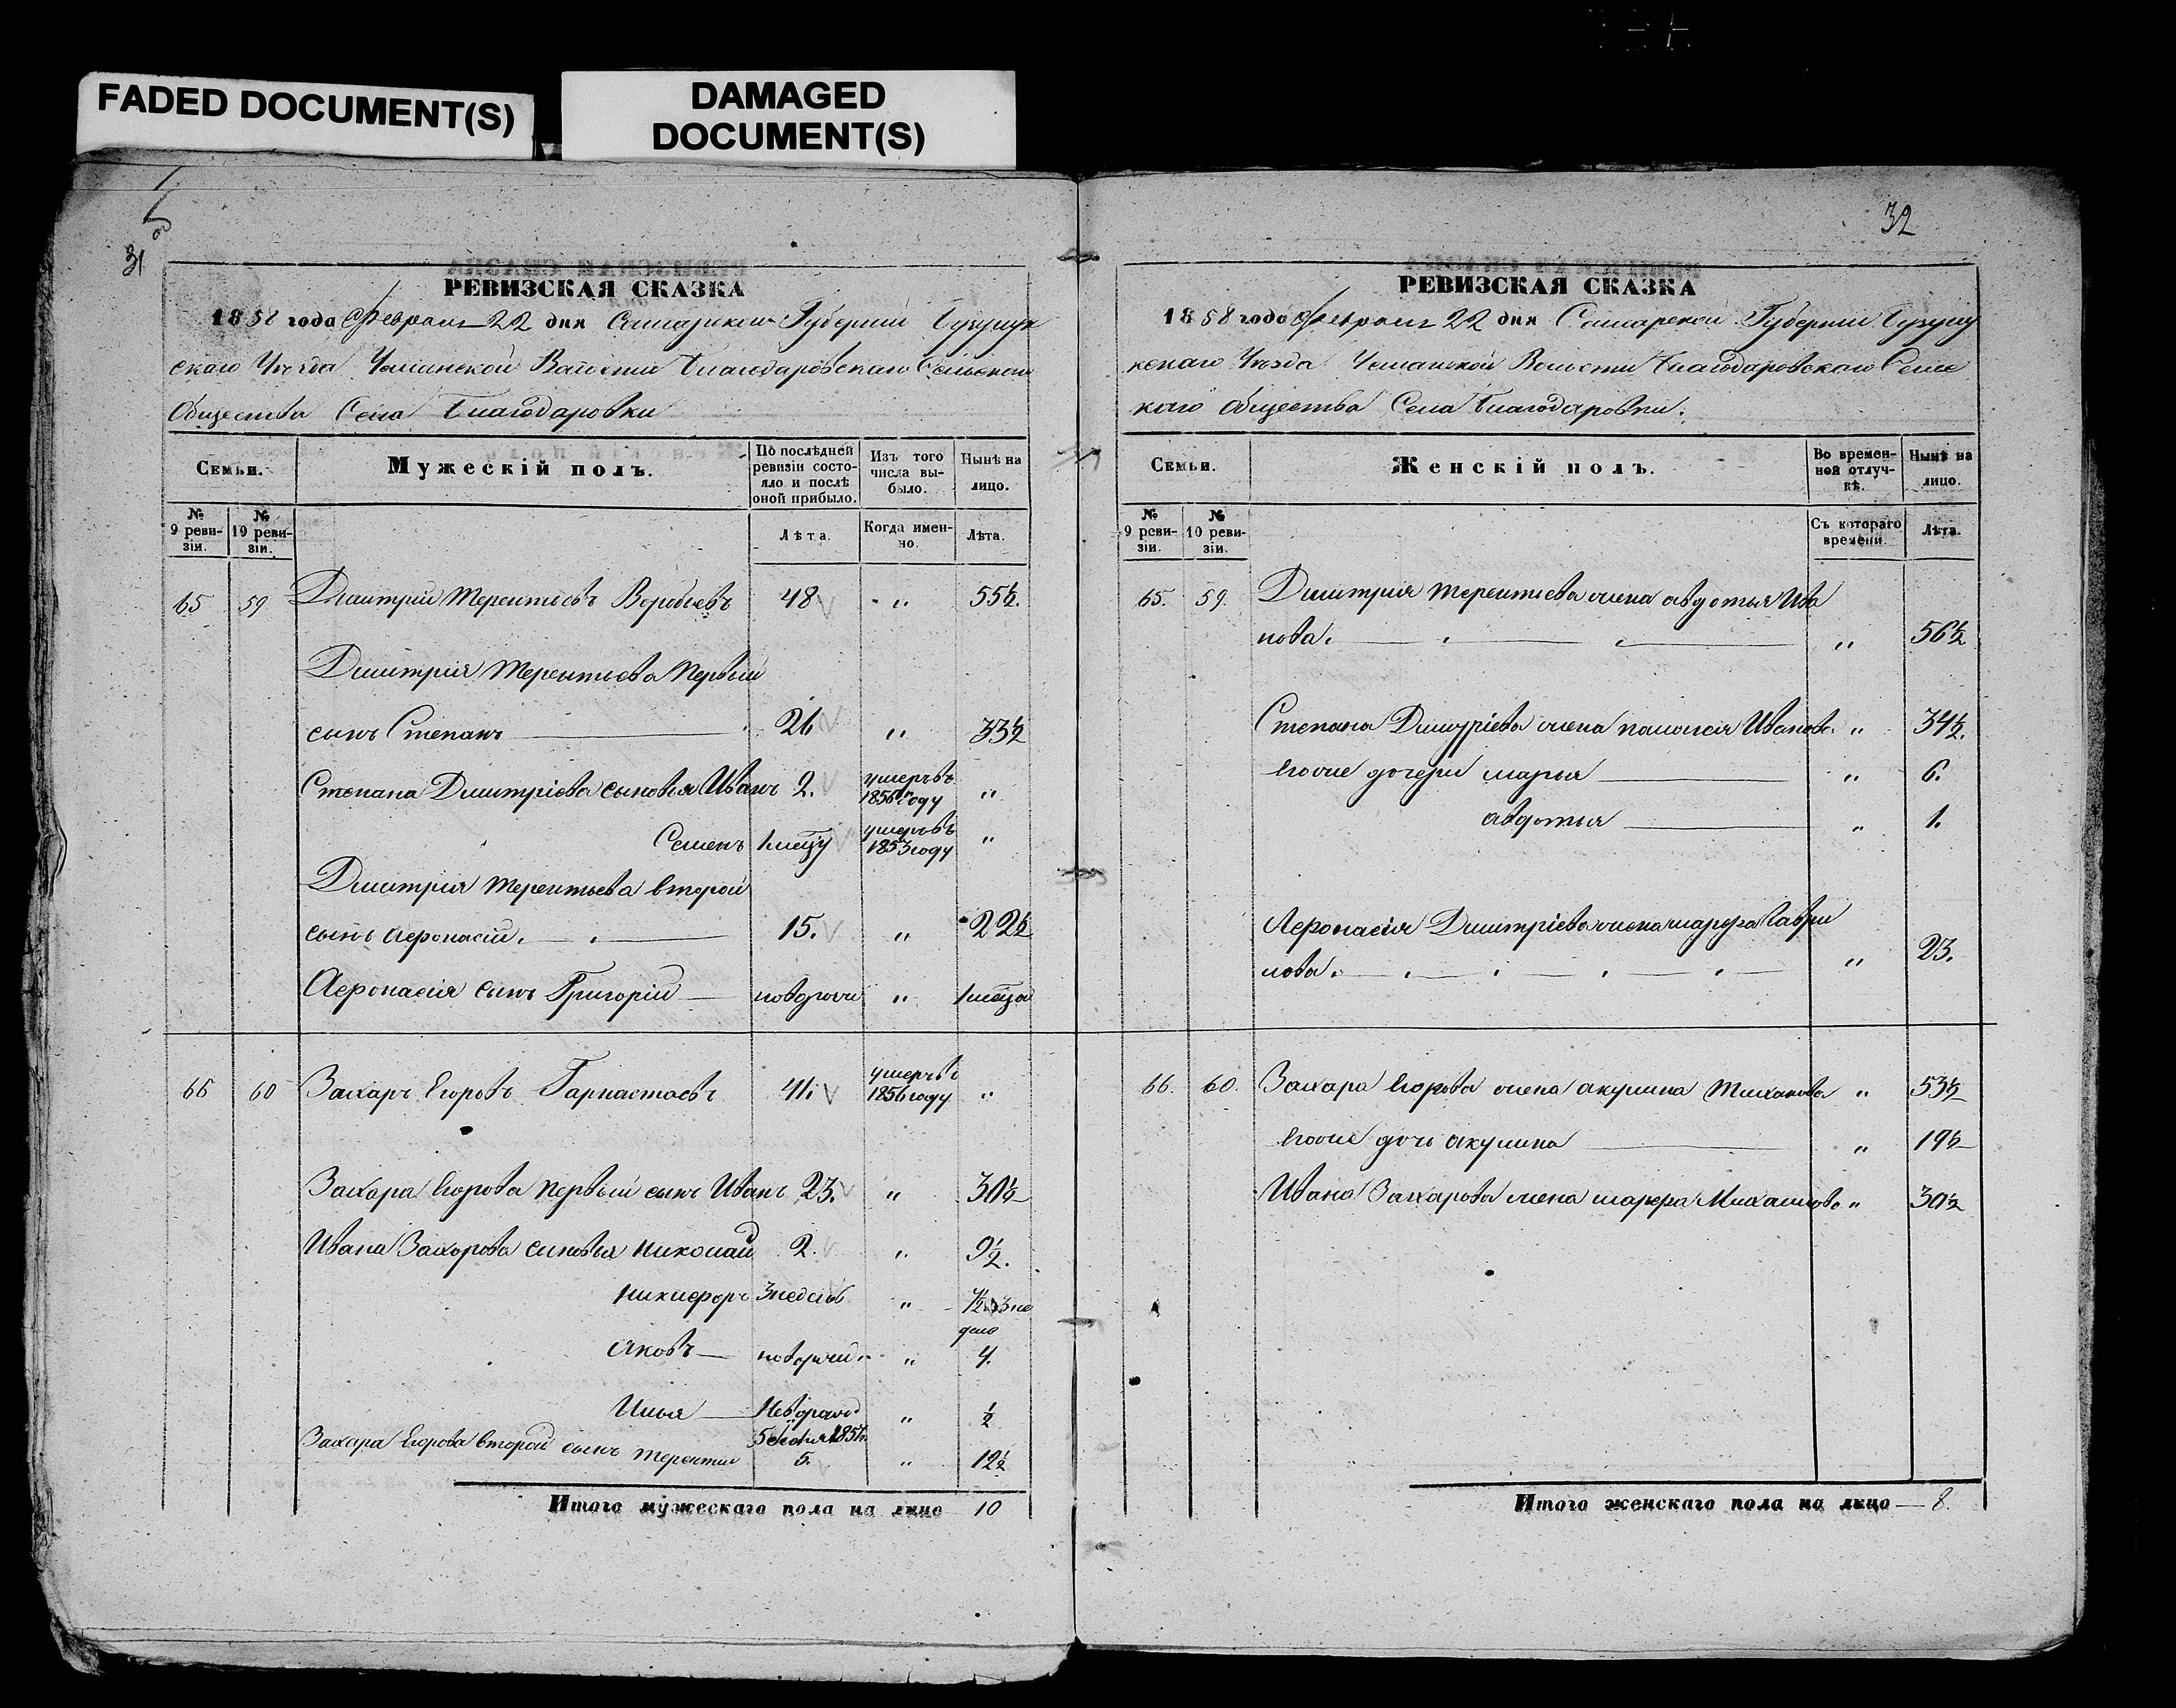 FADED DOCUMENT(S)
DAMAGED
DOCUMENT(S)
31
РЕВИЗСКАЯ СКАЗКА
1858 года Февраля 22 дня Самарской Губерніи Бузулук
скаго Уѣзда Волости Благодаровскаго Сельскаго
Общества Села Благодаровки
Семьи.
Мужескій полъ.
По послѣдней ревизіи состо-яло и послѣ оной прибыло.
Изъ того числа вы-было.
Нынѣ на лицо.
№ 9 реви-зіи.
№ 10 реви-зіи.
Лѣта.
Когда имен-но.
Лѣта.
65 59 Дмитрий Терентьевъ Воробьевъ 48 " 55½.
Дмитрія Терентьева Первый
сынъ Степанъ 26 " 33½
Степана Дмитріева сыновья Иванъ 2. умеръ въ 1856 году "
Семенъ 1 мецу умеръ въ 1853 году "
Дмитрия Терентьева второй
сынъ Афонасій. 15. " 22½
Афонасія сынъ Григорій новорож " 1 меца
66 60 Захаръ Егоровъ Гарнастаевъ 46. умеръ въ 1856 году "
Захара Егорова первый сынъ Иванъ 23. " 30½
Ивана Захарова сыновья Николай 2. " 9½.
Никифоръ 3 недель " 7½ 3 не
дель
Яковъ новорожд. " 4.
Илья Новорожд " ½
1857
Захара Егорова второй сынъ Терентий 5. " 12½
Итого мужескаго пола на лицо 10
32
РЕВИЗСКАЯ СКАЗКА
1858 года Февраля 22 дня Самарской Губерніи Бузулу
кскаго Уѣзда Волости Благодаровскаго Сельс
каго Общества Села Благодаровки.
Семьи.
Женскій полъ.
Во времен-ной отлуч-кѣ.
Нынѣ на лицо.
№ 9 реви-зіи.
№ 10 реви-зіи.
Съ котораго времени.
Лѣта.
65. 59. Дмитрия Терентьева жена Авдотья Ива
нова. " 56½
Степана Дмитріева жена Палагея Иванова " 34½.
Его же дочери Марья " 6.
Авдотья " 1.
Афонасія Дмитріева жена Марфа Гаври
лова. " 23.
66. 60. Захара Егорова жена Акулина " 53½
Его же дочь Акулина " 19½
Ивана Захарова жена Марфа Михайлова " 30½
Итого женскаго пола на лицо 8.